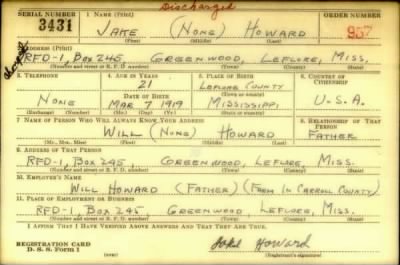 Discharged
SERIAL NUMBER 1. NAME (Print) ORDER NUMBER
3431 JAKE (NONE) HOWARD 937
2. ADDRESS (Print)
RFD-1, BOX 245 GREENWOOD, LEFLORE, MISS.
(Number and street or R. F. D. number) (Town) (County) (State)
3. TELEPHONE 4. AGE IN YEARS 5. PLACE OF BIRTH 6. COUNTRY OF CITIZENSHIP
21 LEFLORE COUNTY
DATE OF BIRTH (Town or county)
NONE MAR 7 1919 MISSISSIPPI U.S.A.
(Exchange) (Number) (Mo.) (Day) (Yr.) (State or country)
7. NAME OF PERSON WHO WILL ALWAYS KNOW YOUR ADDRESS 8. RELATIONSHIP OF THAT PERSON
WILL (NONE) HOWARD FATHER
(Mr., Mrs., Miss) (First) (Middle) (Last)
9. ADDRESS OF THAT PERSON
RFD-1, BOX 245, GREENWOOD, LEFLORE, MISS.
(Number and street or R. F. D. number) (Town) (County) (State)
10. EMPLOYER'S NAME
WILL HOWARD (FATHER) (FARM IN CARROLL COUNTY)
11. PLACE OF EMPLOYMENT OR BUSINESS
RFD-1, BOX 245, GREENWOOD, LEFLORE, MISS.
(Number and street or R. F. D. number) (Town) (County) (State)
I AFFIRM THAT I HAVE VERIFIED ABOVE ANSWERS AND THAT THEY ARE TRUE.
REGISTRATION CARD
D. S. S. Form 1
Jake Howard
(Registrant's signature)